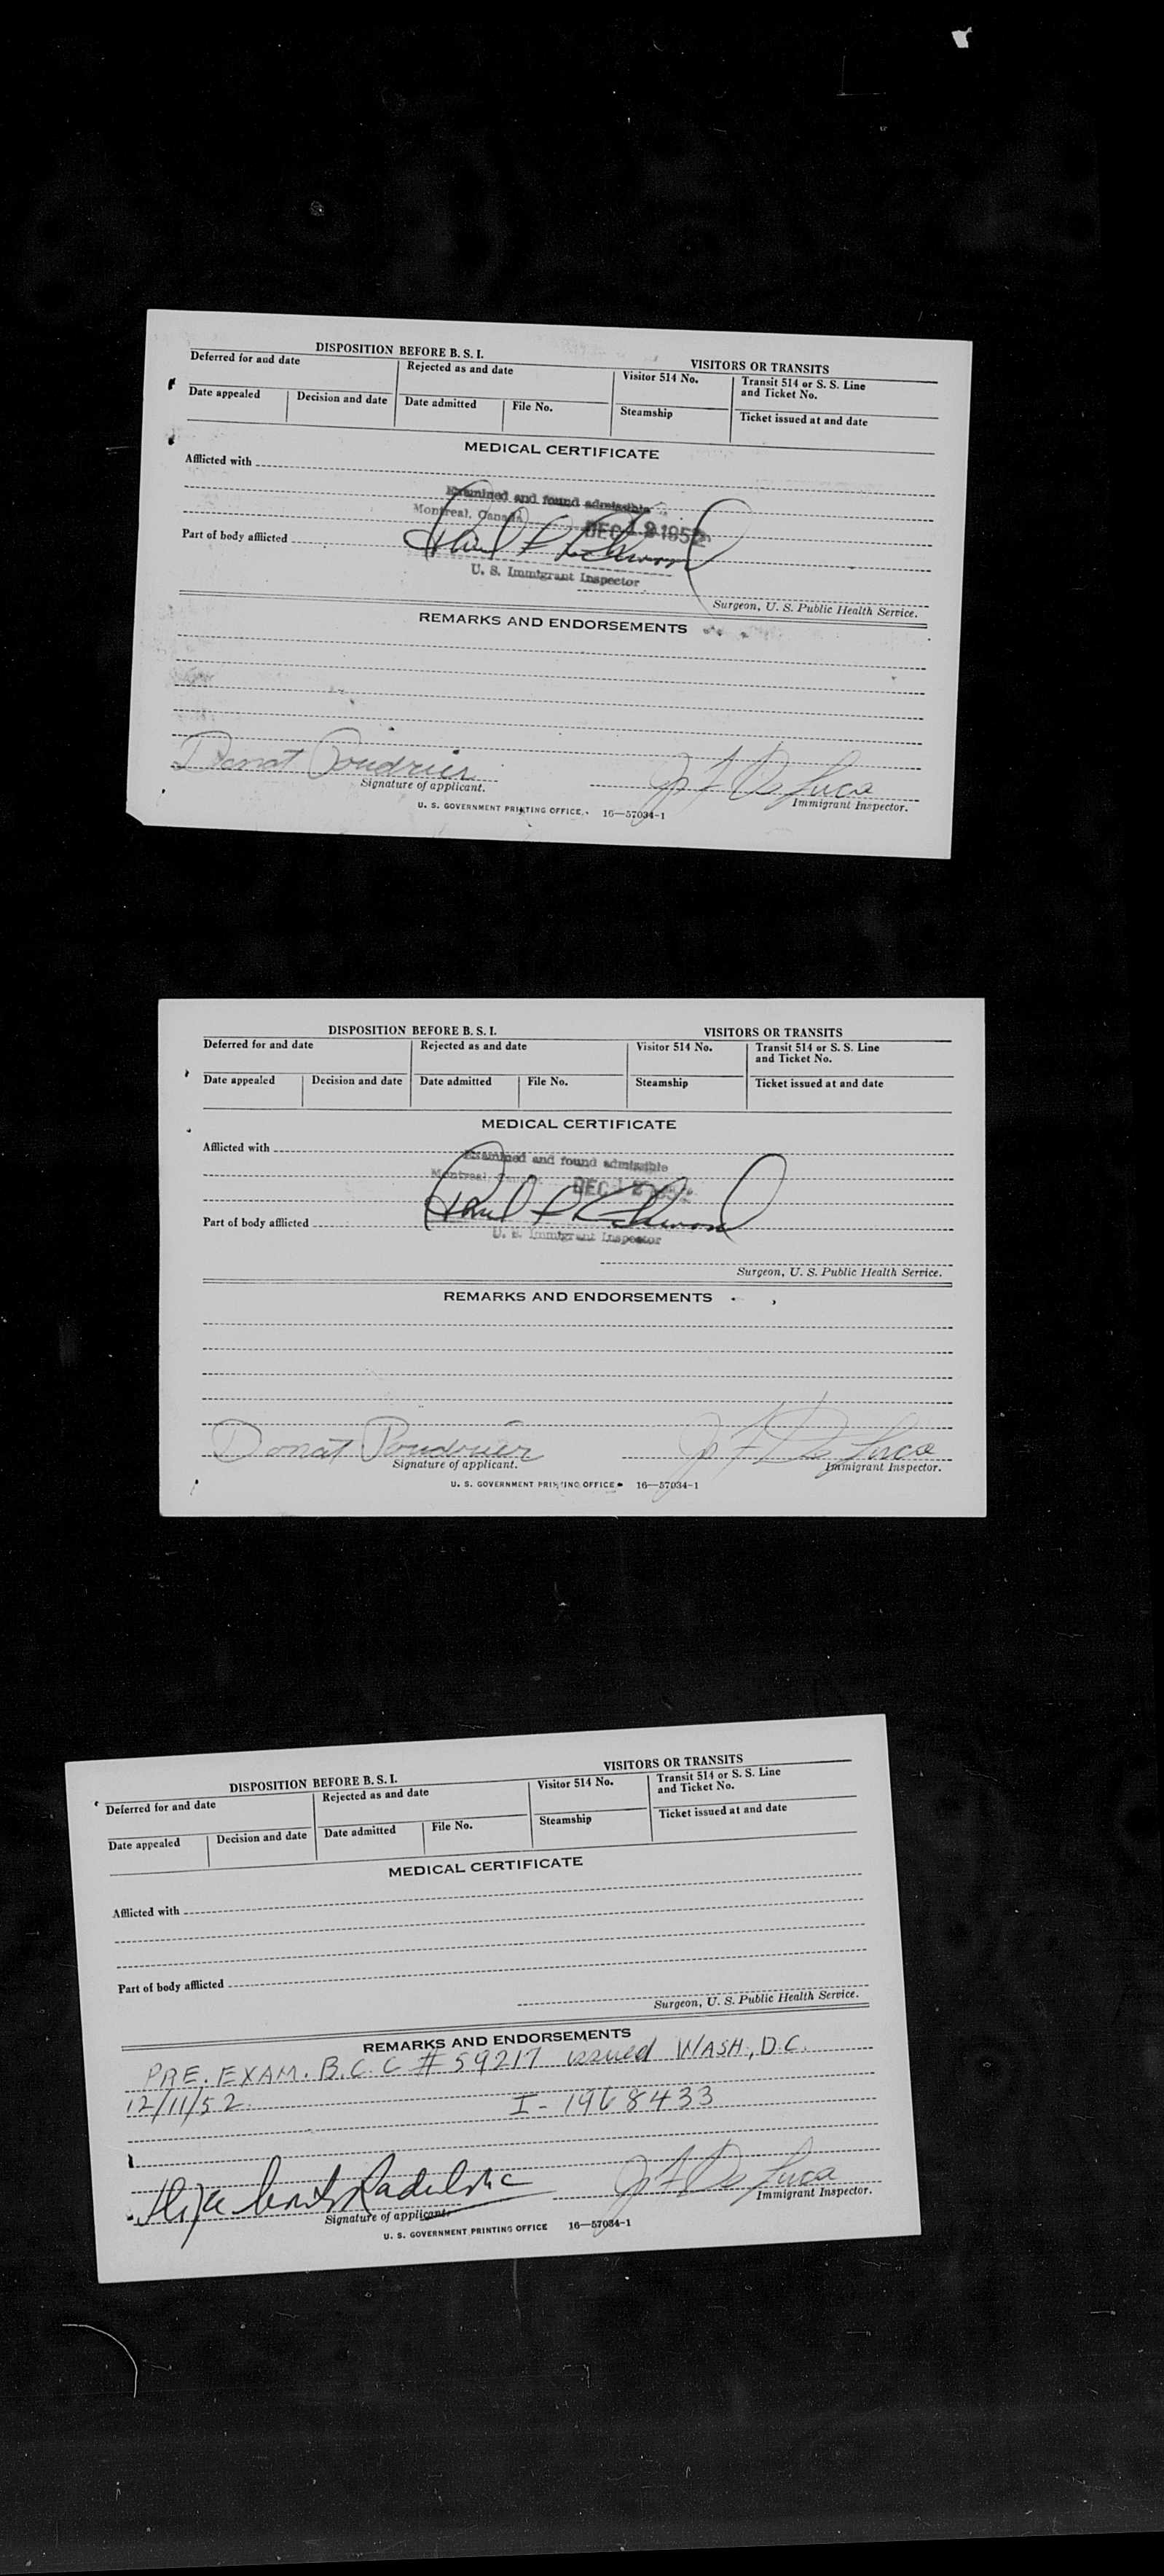 DISPOSITION BEFORE B. S. I. VISITORS OR TRANSITS
Deferred for and date Rejected as and date Visitor 514 No. Transit 514 or S. S. Line and Ticket No.
Date appealed Decision and date Date admitted File No. Steamship Ticket issued at and date
MEDICAL CERTIFICATE
Afflicted with
Examined and found admissible
Montreal, Canada DEC 1952
Part of body afflicted
U. S. Immigrant Inspector
Surgeon, U. S. Public Health Service.
REMARKS AND ENDORSEMENTS
Donat Poudrier Jos F De Luca
Signature of applicant. Immigrant Inspector.
U. S. GOVERNMENT PRINTING OFFICE 16—57034-1
DISPOSITION BEFORE B. S. I. VISITORS OR TRANSITS
Deferred for and date Rejected as and date Visitor 514 No. Transit 514 or S. S. Line and Ticket No.
Date appealed Decision and date Date admitted File No. Steamship Ticket issued at and date
MEDICAL CERTIFICATE
Afflicted with
Examined and found admissible
Montreal, DEC
Part of body afflicted
U. S. Immigrant Inspector
Surgeon, U. S. Public Health Service.
REMARKS AND ENDORSEMENTS
Donat Poudrier Jos F De Luca
Signature of applicant. Immigrant Inspector.
U. S. GOVERNMENT PRINTING OFFICE 16—57034-1
DISPOSITION BEFORE B. S. I. VISITORS OR TRANSITS
Deferred for and date Rejected as and date Visitor 514 No. Transit 514 or S. S. Line and Ticket No.
Date appealed Decision and date Date admitted File No. Steamship Ticket issued at and date
MEDICAL CERTIFICATE
Afflicted with
Part of body afflicted
Surgeon, U. S. Public Health Service.
REMARKS AND ENDORSEMENTS
PRE. EXAM. B.C.C # 59217 issued WASH., D.C.
12/11/52. I- 1968433
Jos F De Luca
Signature of applicant. Immigrant Inspector.
U. S. GOVERNMENT PRINTING OFFICE 16—57034-1